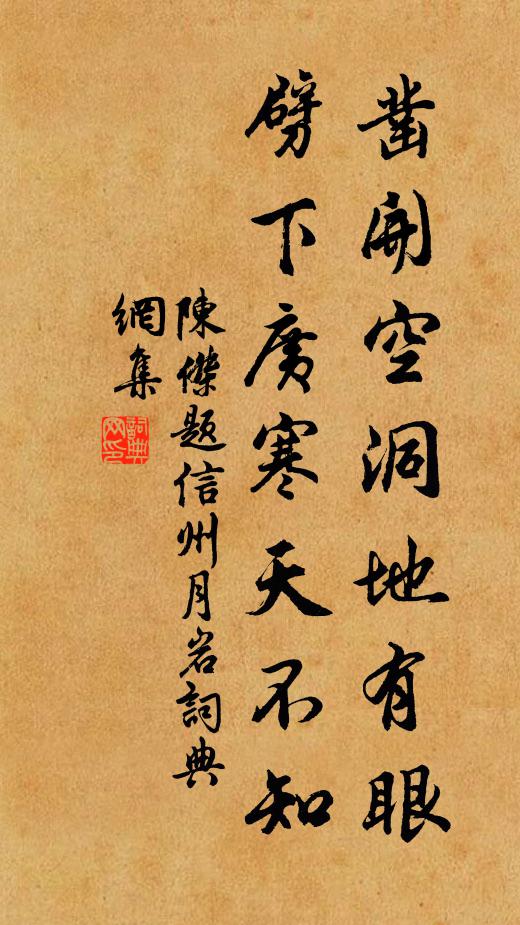 鑿開空洞地有眼
劈下廣寒天不知
陳傑題信州月岩詞典
網集
詞典
网印